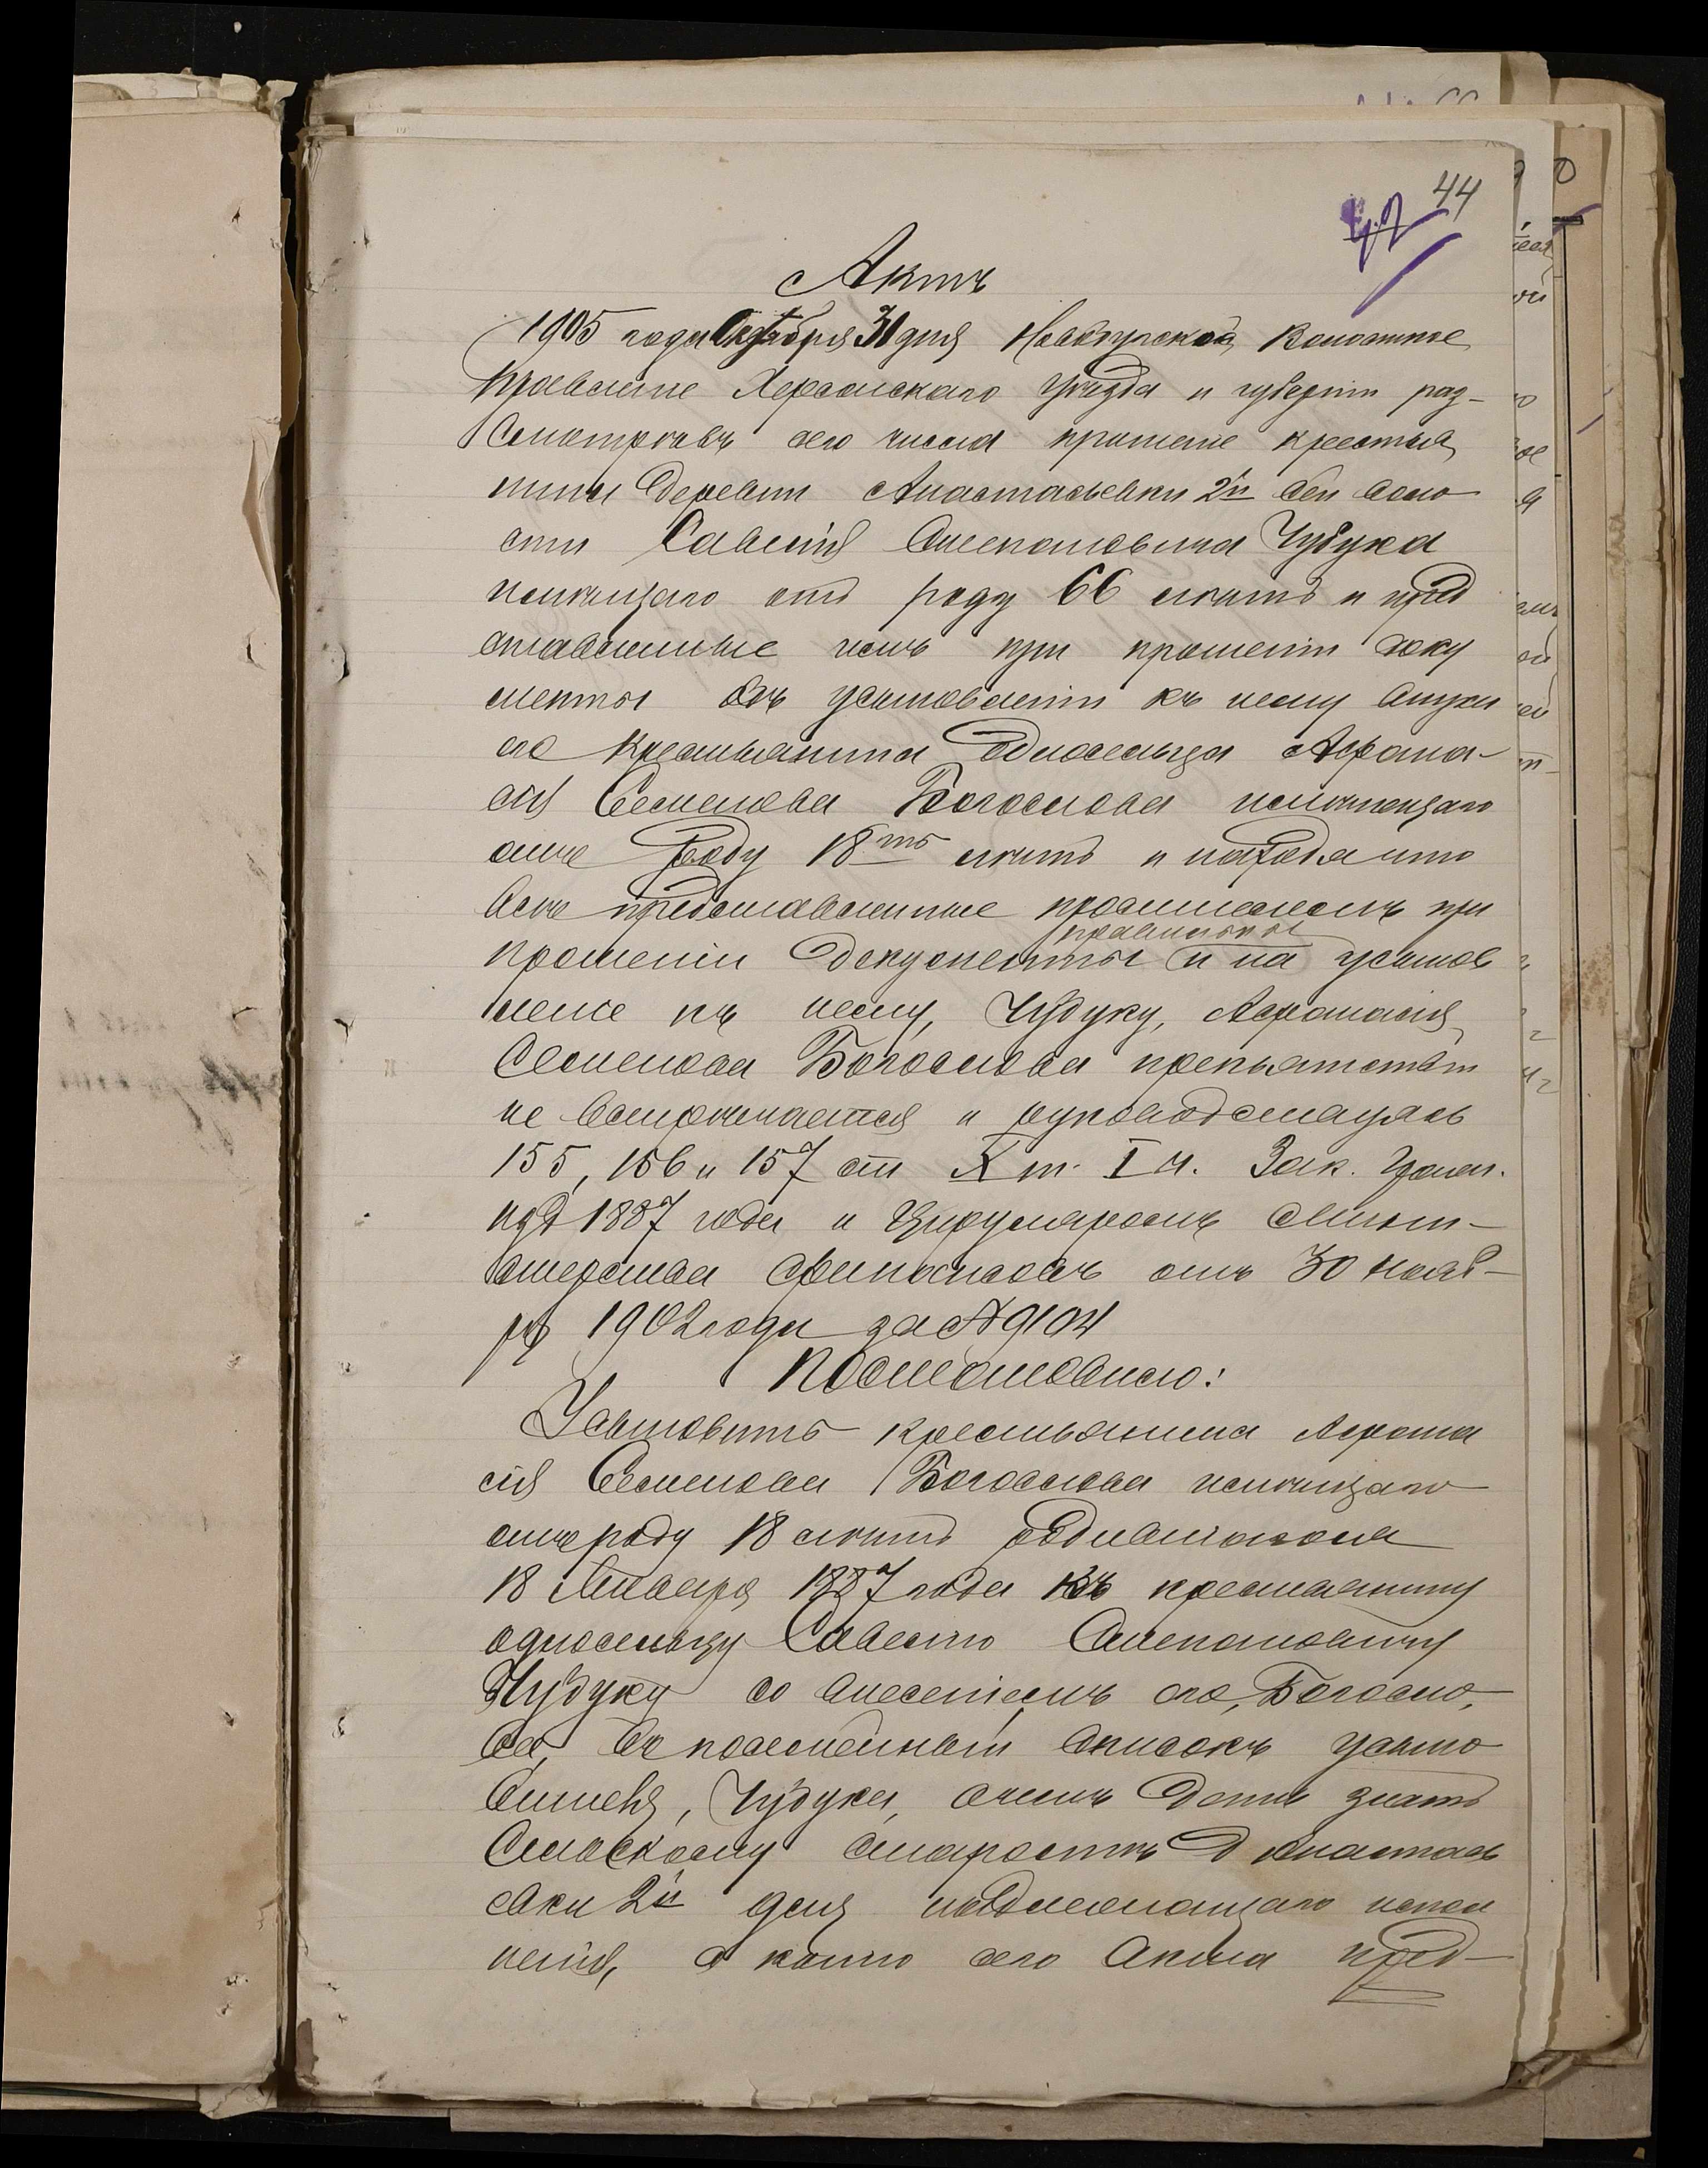 44
42
Актъ
1905 года Октября 31 дня Новобугское Волостное
Правленіе Херсонскаго Уѣзда и губерніи раз-
смотрѣвъ сего числа прошеніе крестья
нина деревни Анастасьевки 2й сей воло
сти Савелія Степановича Чубука
имѣющаго отъ роду 66 лѣтъ и пред
ставленные имъ при прошеніи доку
менты объ усыновленіи къ нему внука
его крестьянина односельца Афана-
сія Семенова Богослова имѣющаго
отъ роду 18ть лѣтъ и находя что
все представленные просителемъ при
правильны
прошеніи документы и на усынов
леніе къ нему, Чубуку, Афанасія
Семенова Богослова препятствій
не встрѣчается и руководствуясь
155, 156 и 157 ст X т. I ч. Зак. Гражд.
изд 1887 года и Циркуляромъ Минист-
терства Финансовъ отъ 30 нояб-
ря 1902 года за № 9104
Постановило:
Усыновить крестьянина Афана
сія Семенова Богослова имѣющаго
отъ роду 18 лѣтъ родившагося
18 Января 1887 года къ крестьянину
односельцу Савелію Степановичу
Чубуку со внесеніемъ его, Богосло,
ва, въ посемейный списокъ усыно
вителя, Чубука, о чемъ дать знать
Сельскому старостѣ д Анастась
евки 2й для надлежащаго испол
ненія, а копію сего Акта пред-